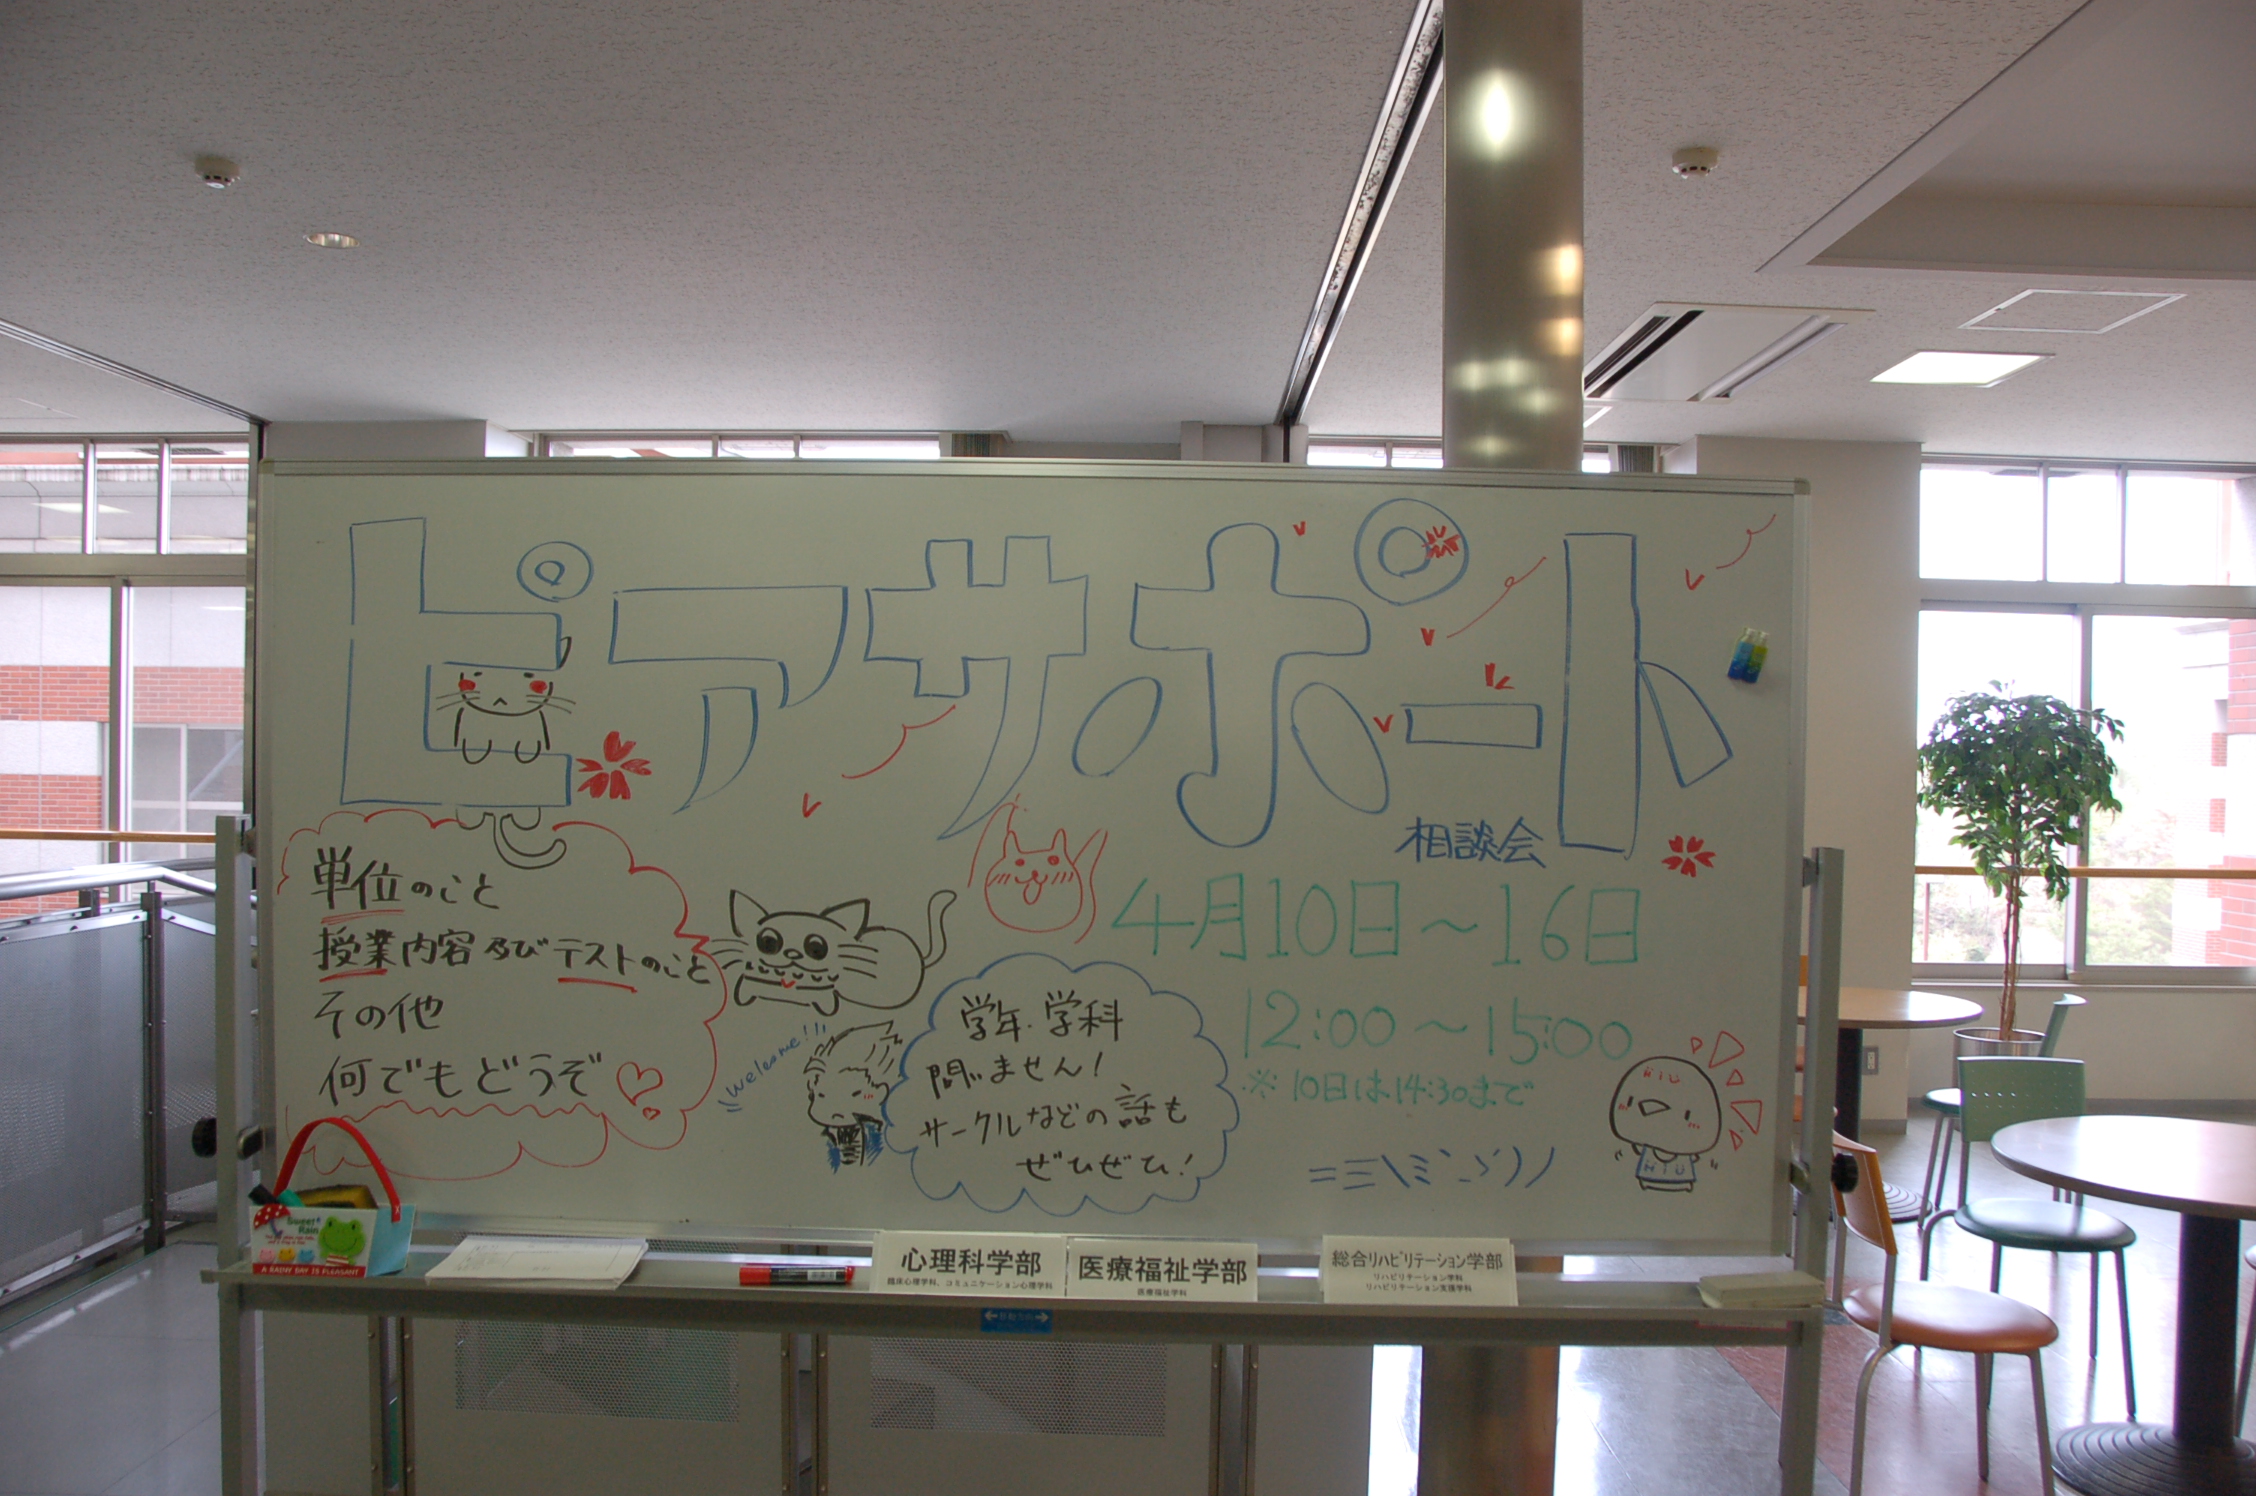 ピアサポート
相談会
単位のこと
授業内容及びテストのこと
その他
何でもどうぞ
welcome!!
学年・学科
問いません!
サークルなどの話も
ぜひぜひ!
4月10日～16日
12:00～15:00
※10日は14:30まで
HIU
HIU
Sweet Rain
A RAINY DAY IS PLEASANT
心理科学部
臨床心理学科、コミュニケーション心理学科
医療福祉学部
医療福祉学科
総合リハビリテーション学部
リハビリテーション学科
リハビリテーション支援学科